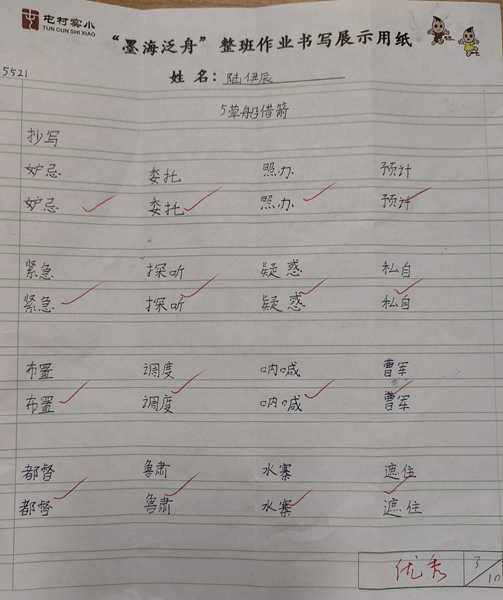 屯村实小
TUN CUN SHI XIAO
“墨海泛舟”整班作业书写展示用纸
5521
姓名：陆伊辰
5草船借箭
抄写
妒忌 委托 照办 预计
妒忌 委托 照办 预计
紧急 探听 疑惑 私自
紧急 探听 疑惑 私自
布置 调度 呐喊 曹军
布置 调度 呐喊 曹军
都督 鲁肃 水寨 遮住
都督 鲁肃 水寨 遮住
优秀 3/10